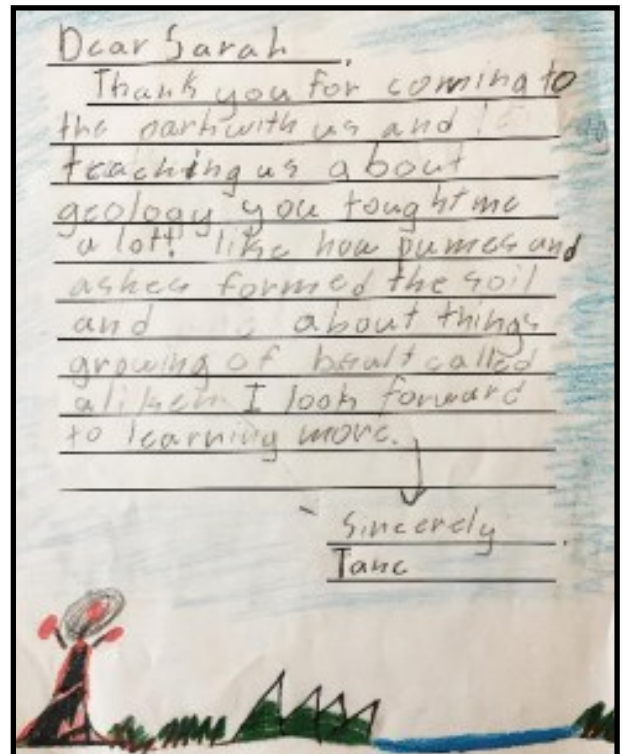 Dear Sarah,
Thank you for coming to
the park with us and
teaching us about
geology you tought me
a lot! like how pumes and
ashes formed the soil
and about things
growing of bsalt called
aliken I look forward
to learning more.
Sincerely,
Tane